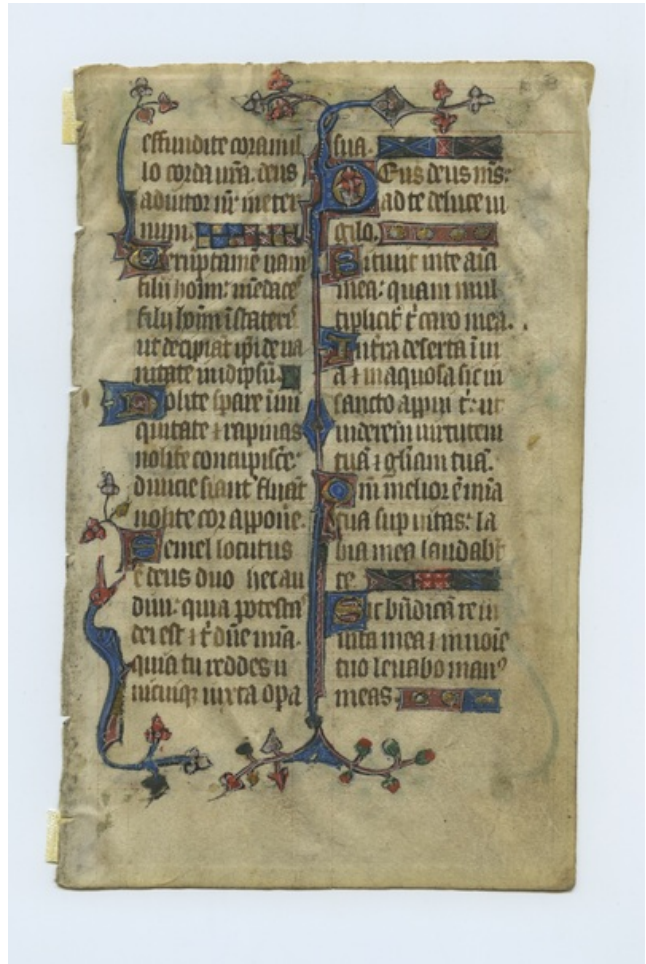 effundite coram il
lo corda vr̄a. deus
adiutor nr̄ in eter
num.
Veruptamē vani
filii hoīm: mēdace
filij hoīm ī stateri
ut decipiāt ip̄i de va
nitate in idipsū.
Nolite sperare ī ini
quitate ⁊ rapinas
nolite concupisce͛:
divicie si affluāt
nolite cor appone͛.
Semel locutus
ē deus duo hec au
divi: quia potesta
dei est ⁊ t̄ dn̄e mīa.
quia tu reddes u
nicuiqꝫ iuxta opa
sua.
Deus deus ms̄:
ad te de luce vi
gilo.
Sitivit in te aīa
mea: quam mul
tiplicit͛ t̄ caro mea.
In terra deserta ī vi
a ⁊ inaquosa sic in
sancto apparui t̄: ut
viderem virtutem
tuā ⁊ gl̄iam tuā.
Qm̄ melior ē mīa
tua sup vitas: la
bia mea laudabt̄
te.
Sic bn̄dicā te in
vita mea ⁊ in noīe
tuo levabo manꝰ
meas